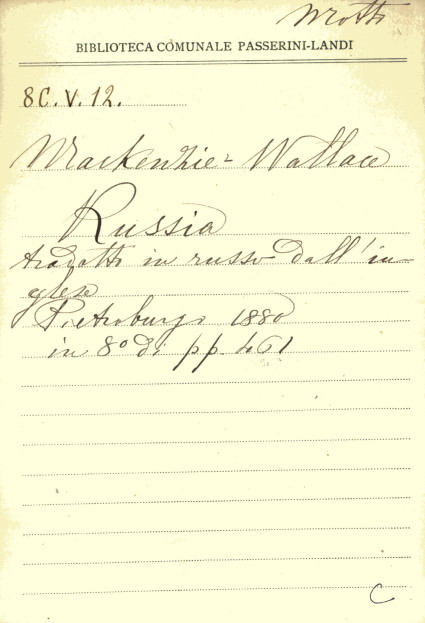 Motti
BIBLIOTECA COMUNALE PASSERINI-LANDI
8C.V.12.
Mackenzie-Wallace
Russia
tradotto in russo dall'in-
glese
Pietroburgo 1880
in 8° di pp. 461
C